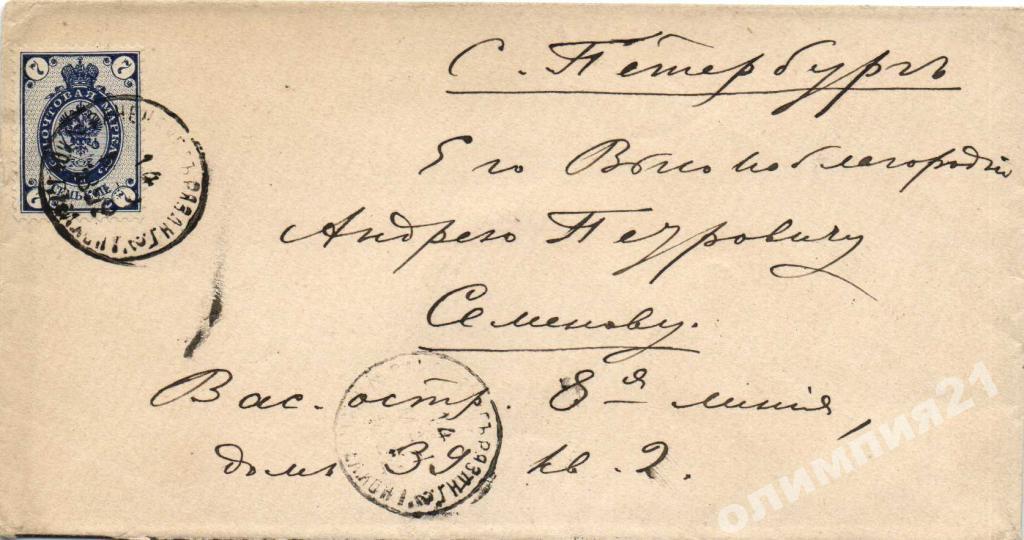 С. Петербургъ
Его Высокоблагородiю
Андрею Петровичу
Семенову.
Вас. остр. 8я линiя,
домъ 39 кв. 2.
7 7
ПОЧТОВАЯ МАРКА
7 7
олимпия21